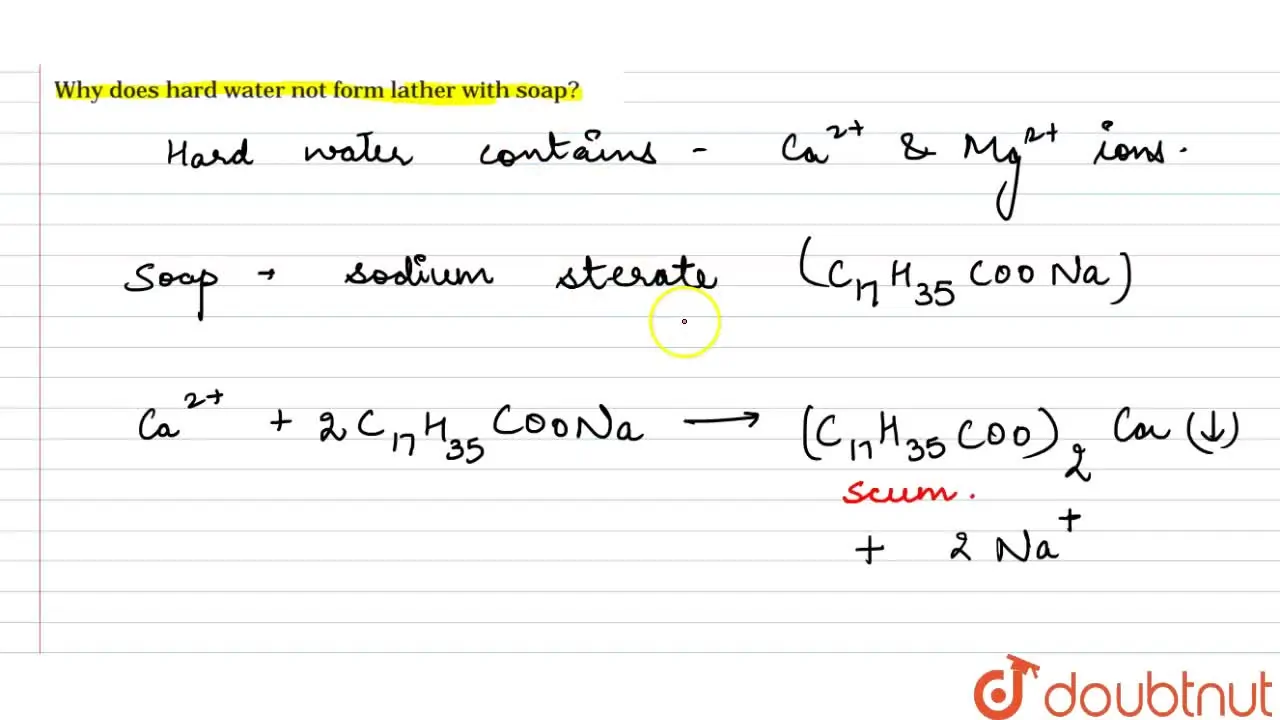 Why does hard water not form lather with soap?
Hard water contains - Ca²⁺ & Mg²⁺ ions.
Soap → sodium sterate (C₁₇H₃₅COONa)
Ca²⁺ + 2C₁₇H₃₅COONa → (C₁₇H₃₅COO)₂Ca(↓)
scum.
+ 2Na⁺
doubtnut